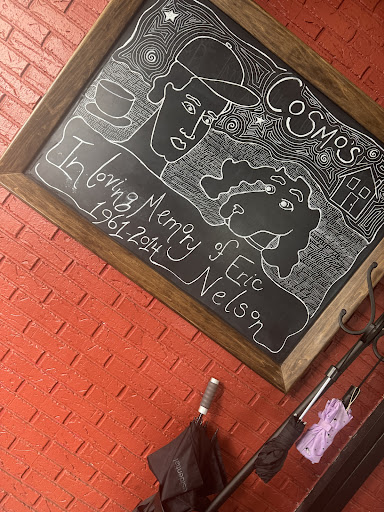 COSMOS
In loving Memory of Eric
1961-2014 Nelson